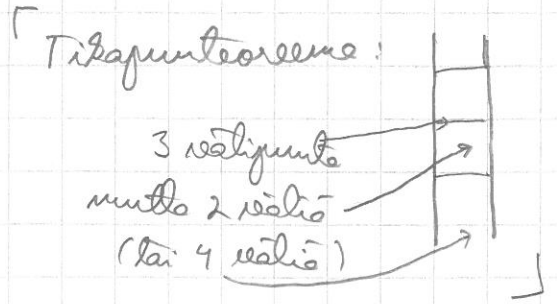 Tikapuuteoreema:
3 välipuuta
mutta 2 väliä
(tai 4 väliä)